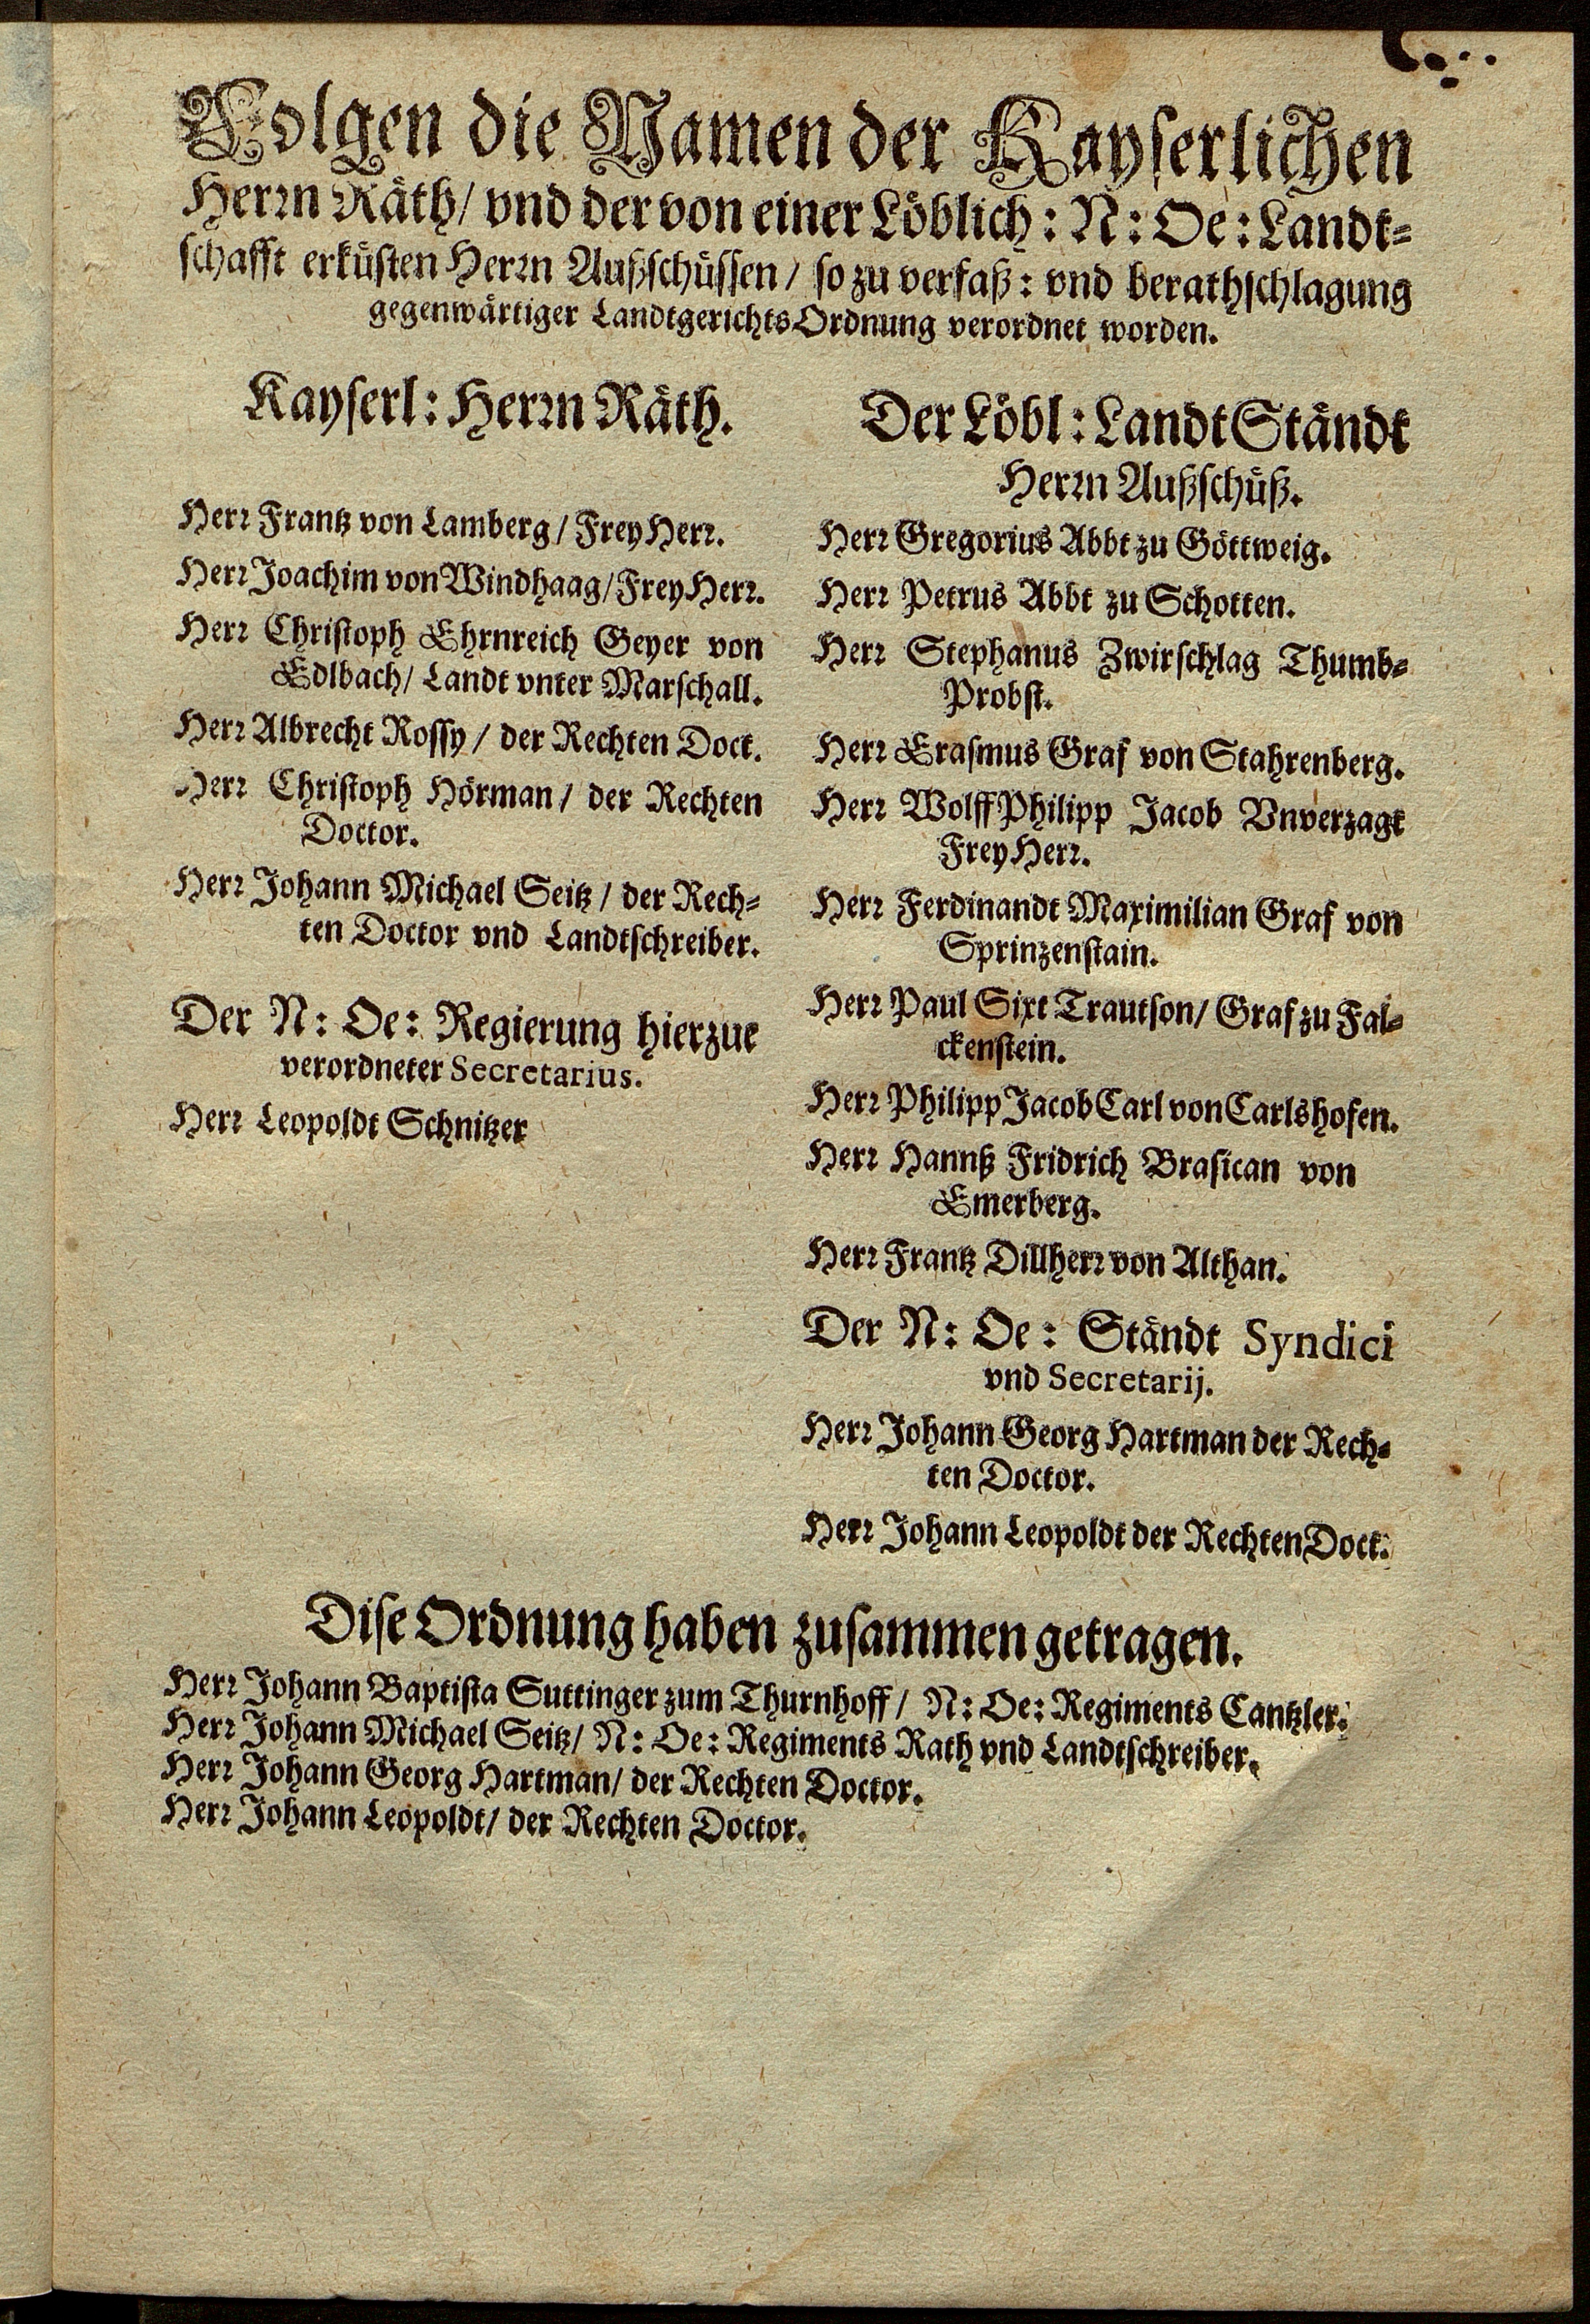 Folgen die Namen der Kayserlichen
Herrn Räth/ vnd der von einer Löblich: N: Oe: Landt-
schafft erküsten Herrn Außschüssen/ so zu verfaß: vnd berathschlagung
gegenwärtiger LandtgerichtsOrdnung verordnet worden.
Kayserl: Herrn Räth.
Herr Frantz von Lamberg/ FreyHerr.
Herr Joachim von Windhaag/ FreyHerr.
Herr Christoph Ehrnreich Geyer von
Edlbach/ Landt vnter Marschall.
Herr Albrecht Rossy/ der Rechten Doct.
Herr Christoph Hörman/ der Rechten
Doctor.
Herr Johann Michael Seitz/ der Rech-
ten Doctor vnd Landtschreiber.
Der N: Oe: Regierung hierzue
verordneter Secretarius.
Herr Leopoldt Schnitzer
Der Löbl: LandtStändt
Herrn Außschüß.
Herr Gregorius Abbt zu Göttweig.
Herr Petrus Abbt zu Schotten.
Herr Stephanus Zwirschlag Thumb-
Probst.
Herr Erasmus Graf von Stahrenberg.
Herr WolffPhilipp Jacob Vnverzagt
FreyHerr.
Herr Ferdinandt Maximilian Graf von
Sprinzenstain.
Herr Paul Sixt Trautson/ Graf zu Fal-
ckenstein.
Herr Philipp Jacob Carl von Carlshofen.
Herr Hannß Fridrich Brasican von
Emerberg.
Herr Frantz Dillherr von Althan.
Der N: Oe: Ständt Syndici
vnd Secretarij.
Herr Johann Georg Hartman der Rech-
ten Doctor.
Herr Johann Leopoldt der Rechten Doct.
Dise Ordnung haben zusammen getragen.
Herr Johann Baptista Suttinger zum Thurnhoff/ N: Oe: Regiments Cantzler.
Herr Johann Michael Seitz/ N: Oe: Regiments Rath vnd Landtschreiber.
Herr Johann Georg Hartman/ der Rechten Doctor.
Herr Johann Leopoldt/ der Rechten Doctor.